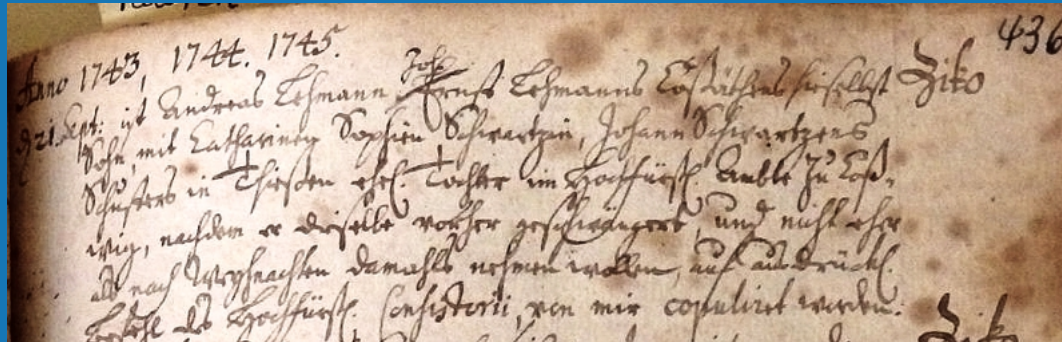 436
Anno 1743, 1744. 1745.
d 21. Sept: ist Andreas Lehmann, Joh. Ernst Lehmanns Coßäthens hieselbst Ziko
Sohn, mit Catharinen Sophien Schwartzin, Johann Schwartzens
Schusters in Thießen ehel. Tochter im Hochfürstl. Ambte zu Coß-
wig, nachdem er dieselbe vorher geschwängert, und nicht eher
als nach Weyhnachten damahls nehmen wollen, auf ausdrückl.
Befehl des Hochfürstl. Consistorii, von mir copuliret worden.
Ziko